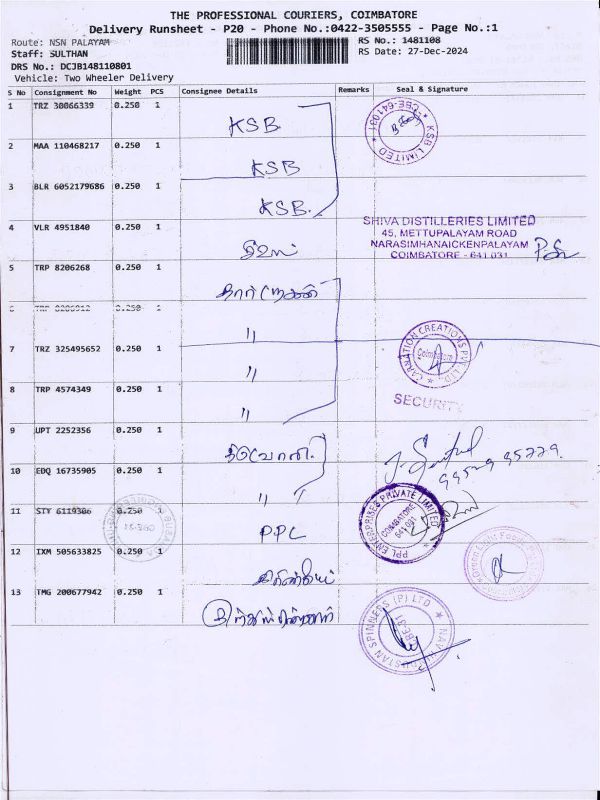 THE PROFESSIONAL COURIERS, COIMBATORE
Delivery Runsheet - P20 - Phone No.:0422-3505555 - Page No.:1
Route: NSN PALAYAM
RS No.: 1481108
Staff: SULTHAN
RS Date: 27-Dec-2024
DRS No.: DCJB148110801
Vehicle: Two Wheeler Delivery
S No Consignment No Weight PCS Consignee Details Remarks Seal & Signature
1 TRZ 30066339 0.250 1 KSB
KSB LIMITED * CBE-641031 *
2 MAA 110468217 0.250 1 KSB
3 BLR 6052179686 0.250 1 KSB.
4 VLR 4951840 0.250 1
SHIVA DISTILLERIES LIMITED
45, METTUPALAYAM ROAD
NARASIMHANAICKENPALAYAM
COIMBATORE - 641 031
5 TRP 8206268 0.250 1
6 TRP 8206912 0.250 1 "
7 TRZ 325495652 0.250 1 "
CARNATION CREATIONS PVT LTD
Coimbatore
8 TRP 4574349 0.250 1 "
SECURITY
9 UPT 2252356 0.250 1
10 EDQ 16735905 0.250 1 "
11 STY 6119306 0.250 1 PPC
PPL ENTERPRISES PRIVATE LIMITED
COIMBATORE
641 031
12 IXM 505633825 0.250 1
13 TMG 200677942 0.250 1
SPINNERS (P) LTD
CBE-31